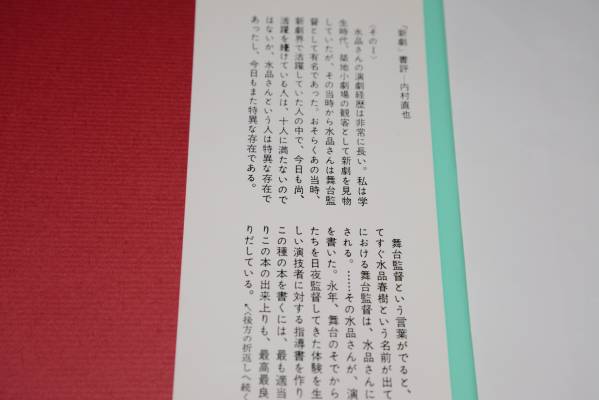 「新劇」書評―内村直也
〈その1〉
水品さんの演劇経歴は非常に長い。私は学
生時代、築地小劇場の観客として新劇を見物
していたが、その当時から水品さんは舞台監
督として有名であった。おそらくあの当時、
新劇界で活躍していた人の中で、今日も尚、
活躍を続けている人は、十人に満たないので
はないか、水品さんという人は特異な存在で
あったし、今日もまた特異な存在である。
舞台監督という言葉がでると、
てすぐ水品春樹という名前が出て
における舞台監督は、水品さんに
される。……その水品さんが、演
を書いた。永年、舞台のそでから
たちを日夜監督してきた体験を生
しい演技者に対する指導書を作り
この種の本を書くには、最も適当
りこの本の出来上りも、最高最良
りだしている。〈後方の折返しへ続く